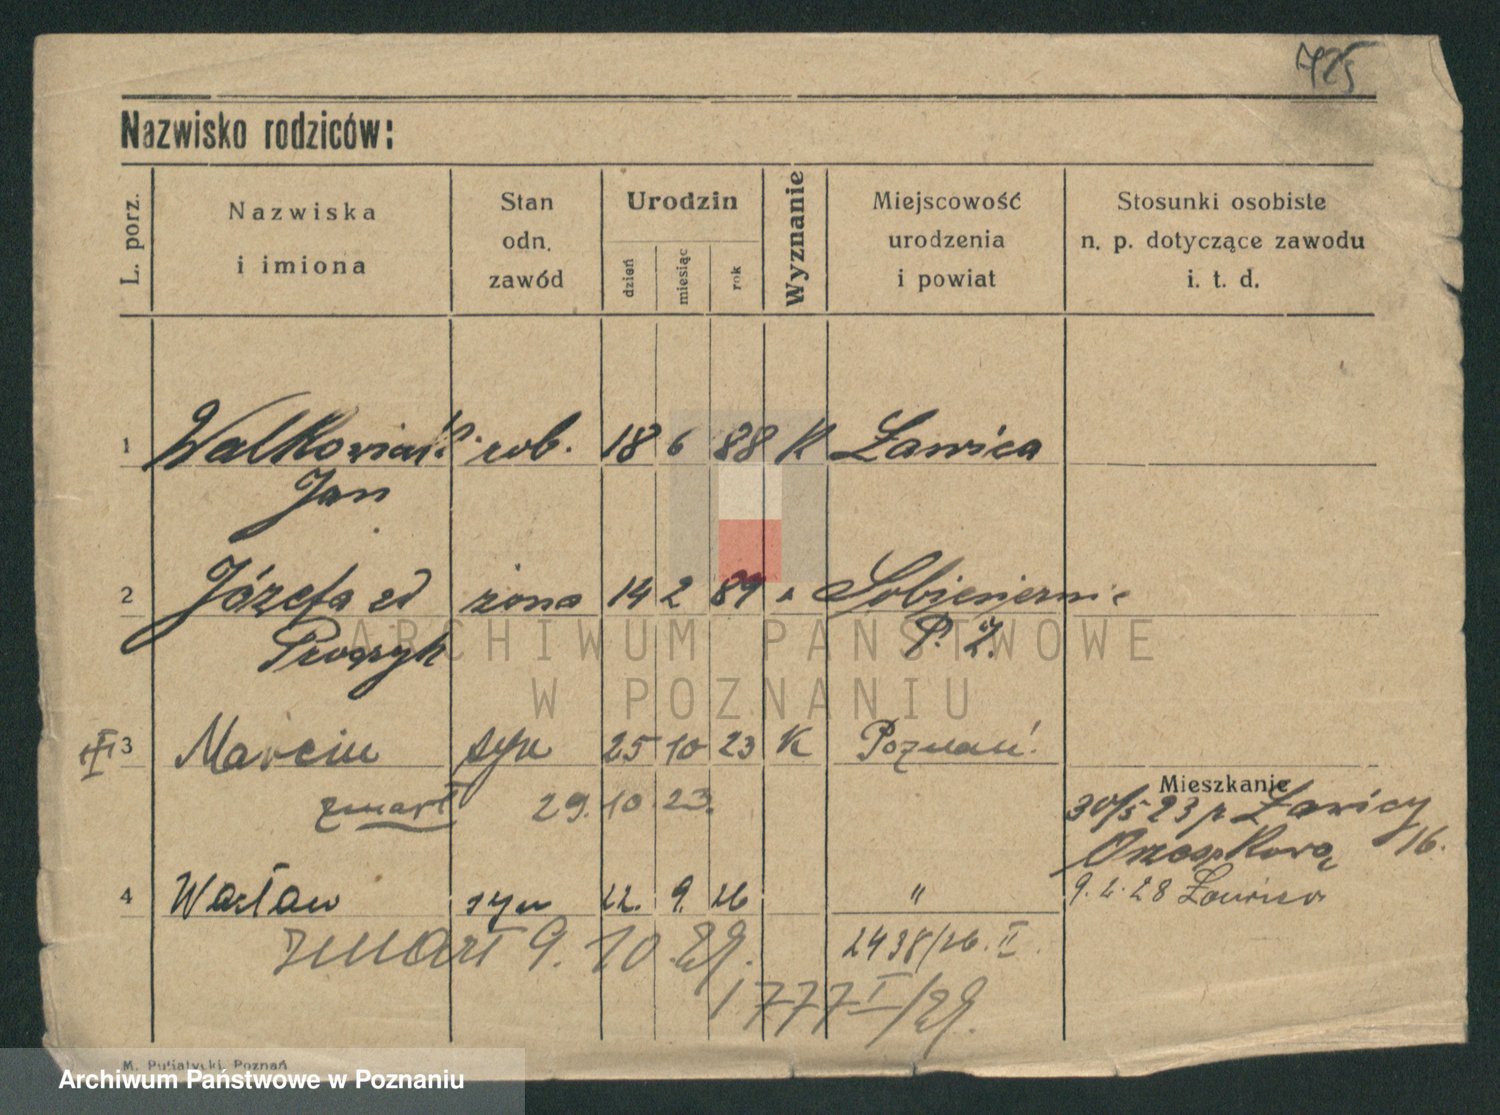 725
Nazwisko rodziców:
L. porz.
Nazwiska
i imiona
Stan
odn.
zawód
Urodzin
dzień
miesiąc
rok
Wyznanie
Miejscowość
urodzenia
i powiat
Stosunki osobiste
n. p. dotyczące zawodu
i. t. d.
1 Walkowiak rob. 18 6 88 K Ławica
Jan
2 Józefa zd żona 14 2 89
P. Z.
ARCHIWUM PAŃSTWOWE
W POZNANIU
3 Marcin syn 25 10 23 K Poznań
Mieszkanie
zmarł 29. 10. 23.
30/5 23 Ławicy
16.
4 Wacław syn 22. 9. 26 "
9. 2. 28 Ławica
zmarł 9. 10. 29.
2438/26. II
1777 I/29.
M. Putiatycki, Poznań
Archiwum Państwowe w Poznaniu